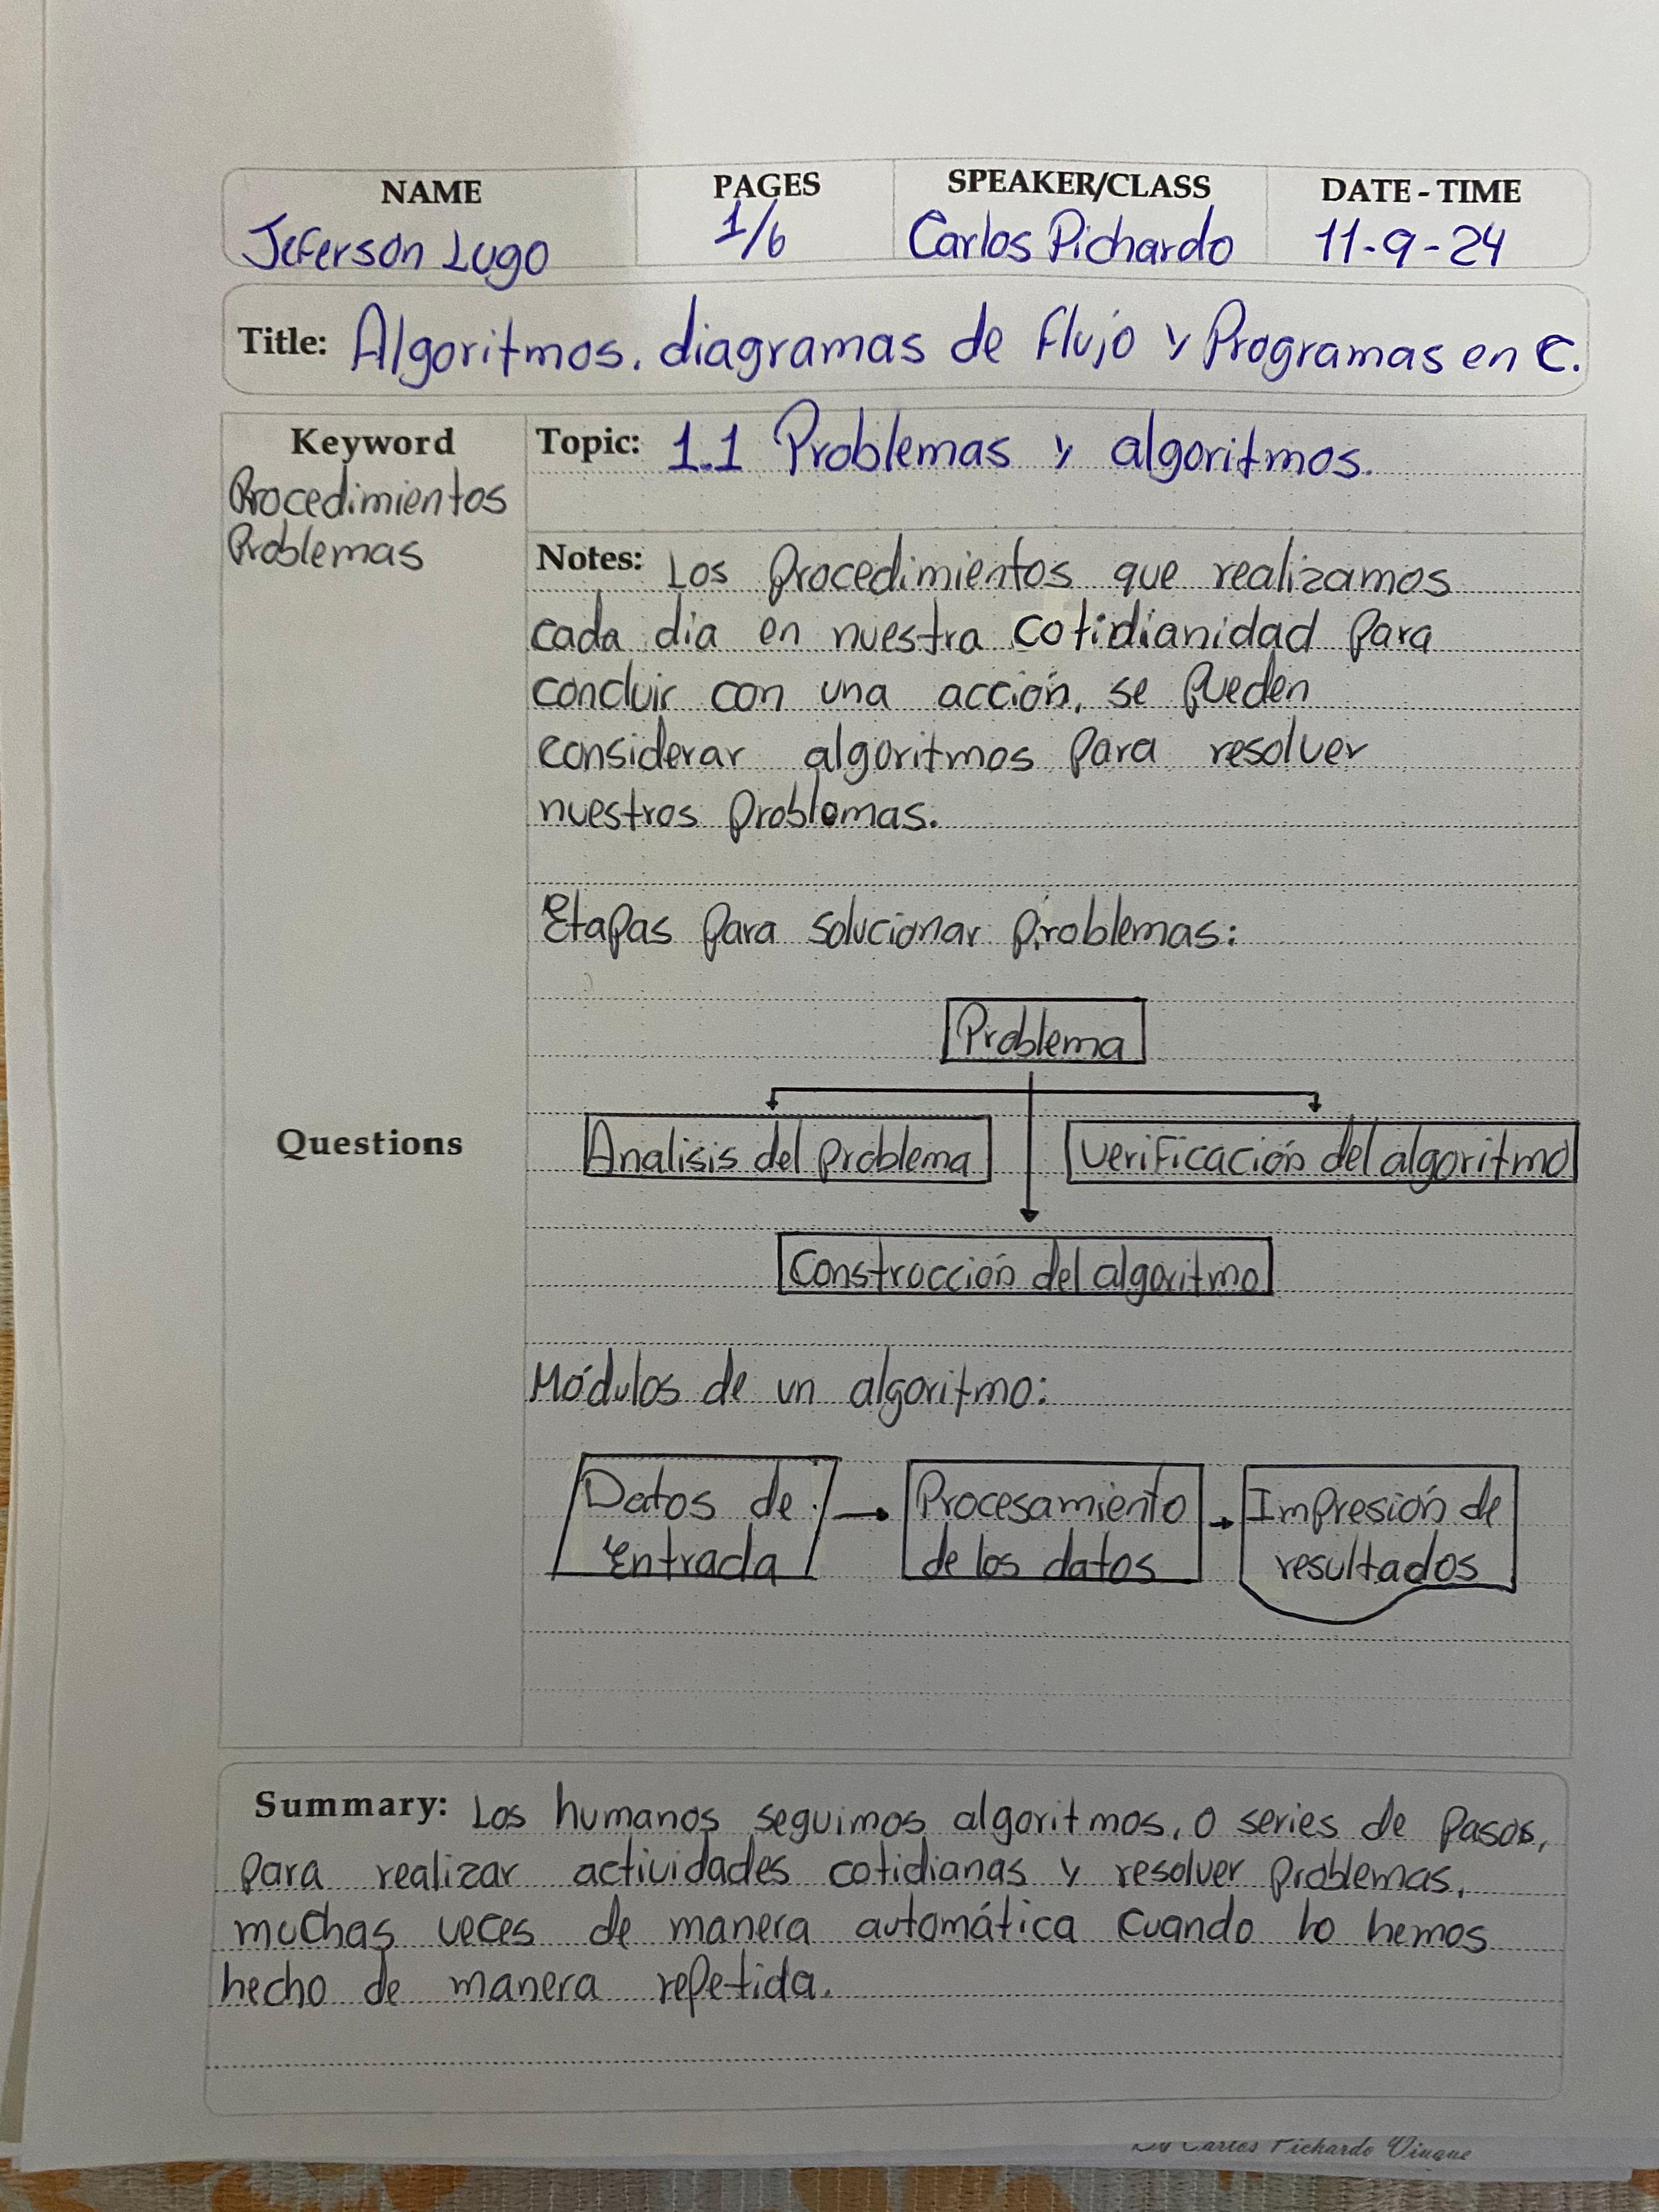 NAME PAGES SPEAKER/CLASS DATE - TIME
Jeferson Lugo 1/6 Carlos Pichardo 11-9-24
Title: Algoritmos, diagramas de flujo y Programas en C.
Keyword
Procedimientos
Problemas
Topic: 1.1 Problemas y algoritmos.
Notes: Los Procedimientos que realizamos
cada dia en nuestra cotidianidad Para
concluir con una acción, se Pueden
considerar algoritmos Para resolver
nuestros Problemas.
Etapas Para solucionar Problemas:
Problema
Questions
Analisis del problema
verificación del algoritmo
Construcción del algoritmo
Módulos de un algoritmo:
Datos de
Entrada
Procesamiento
de los datos
Impresión de
resultados
Summary: Los humanos seguimos algoritmos, o series de Pasos,
Para realizar actividades cotidianas y resolver Problemas,
muchas veces de manera automática cuando lo hemos
hecho de manera repetida.
Carlos Pichardo Viuque